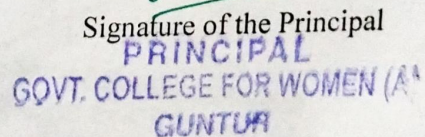 Signature of the Principal
PRINCIPAL
GOVT. COLLEGE FOR WOMEN (A
GUNTUR